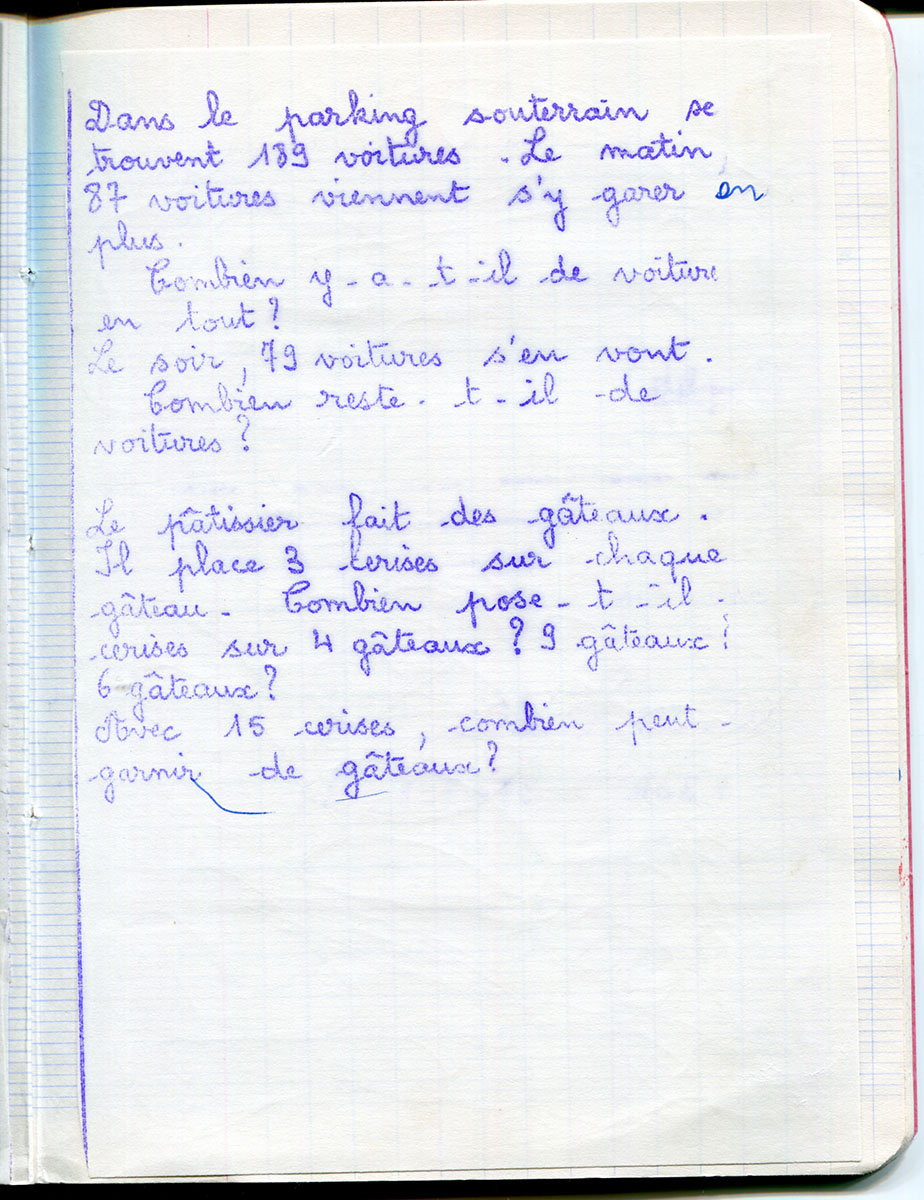 Dans le parking souterrain se
trouvent 189 voitures. Le matin,
87 voitures viennent s'y garer en
plus.
Combien y-a-t-il de voiture
en tout ?
Le soir, 79 voitures s'en vont.
Combien reste-t-il de
voitures ?
Le pâtissier fait des gâteaux.
Il place 3 cerises sur chaque
gâteau. Combien pose-t-il
cerises sur 4 gâteaux ? 9 gâteaux ?
6 gâteaux ?
Avec 15 cerises, combien peut-
garnir de gâteaux ?